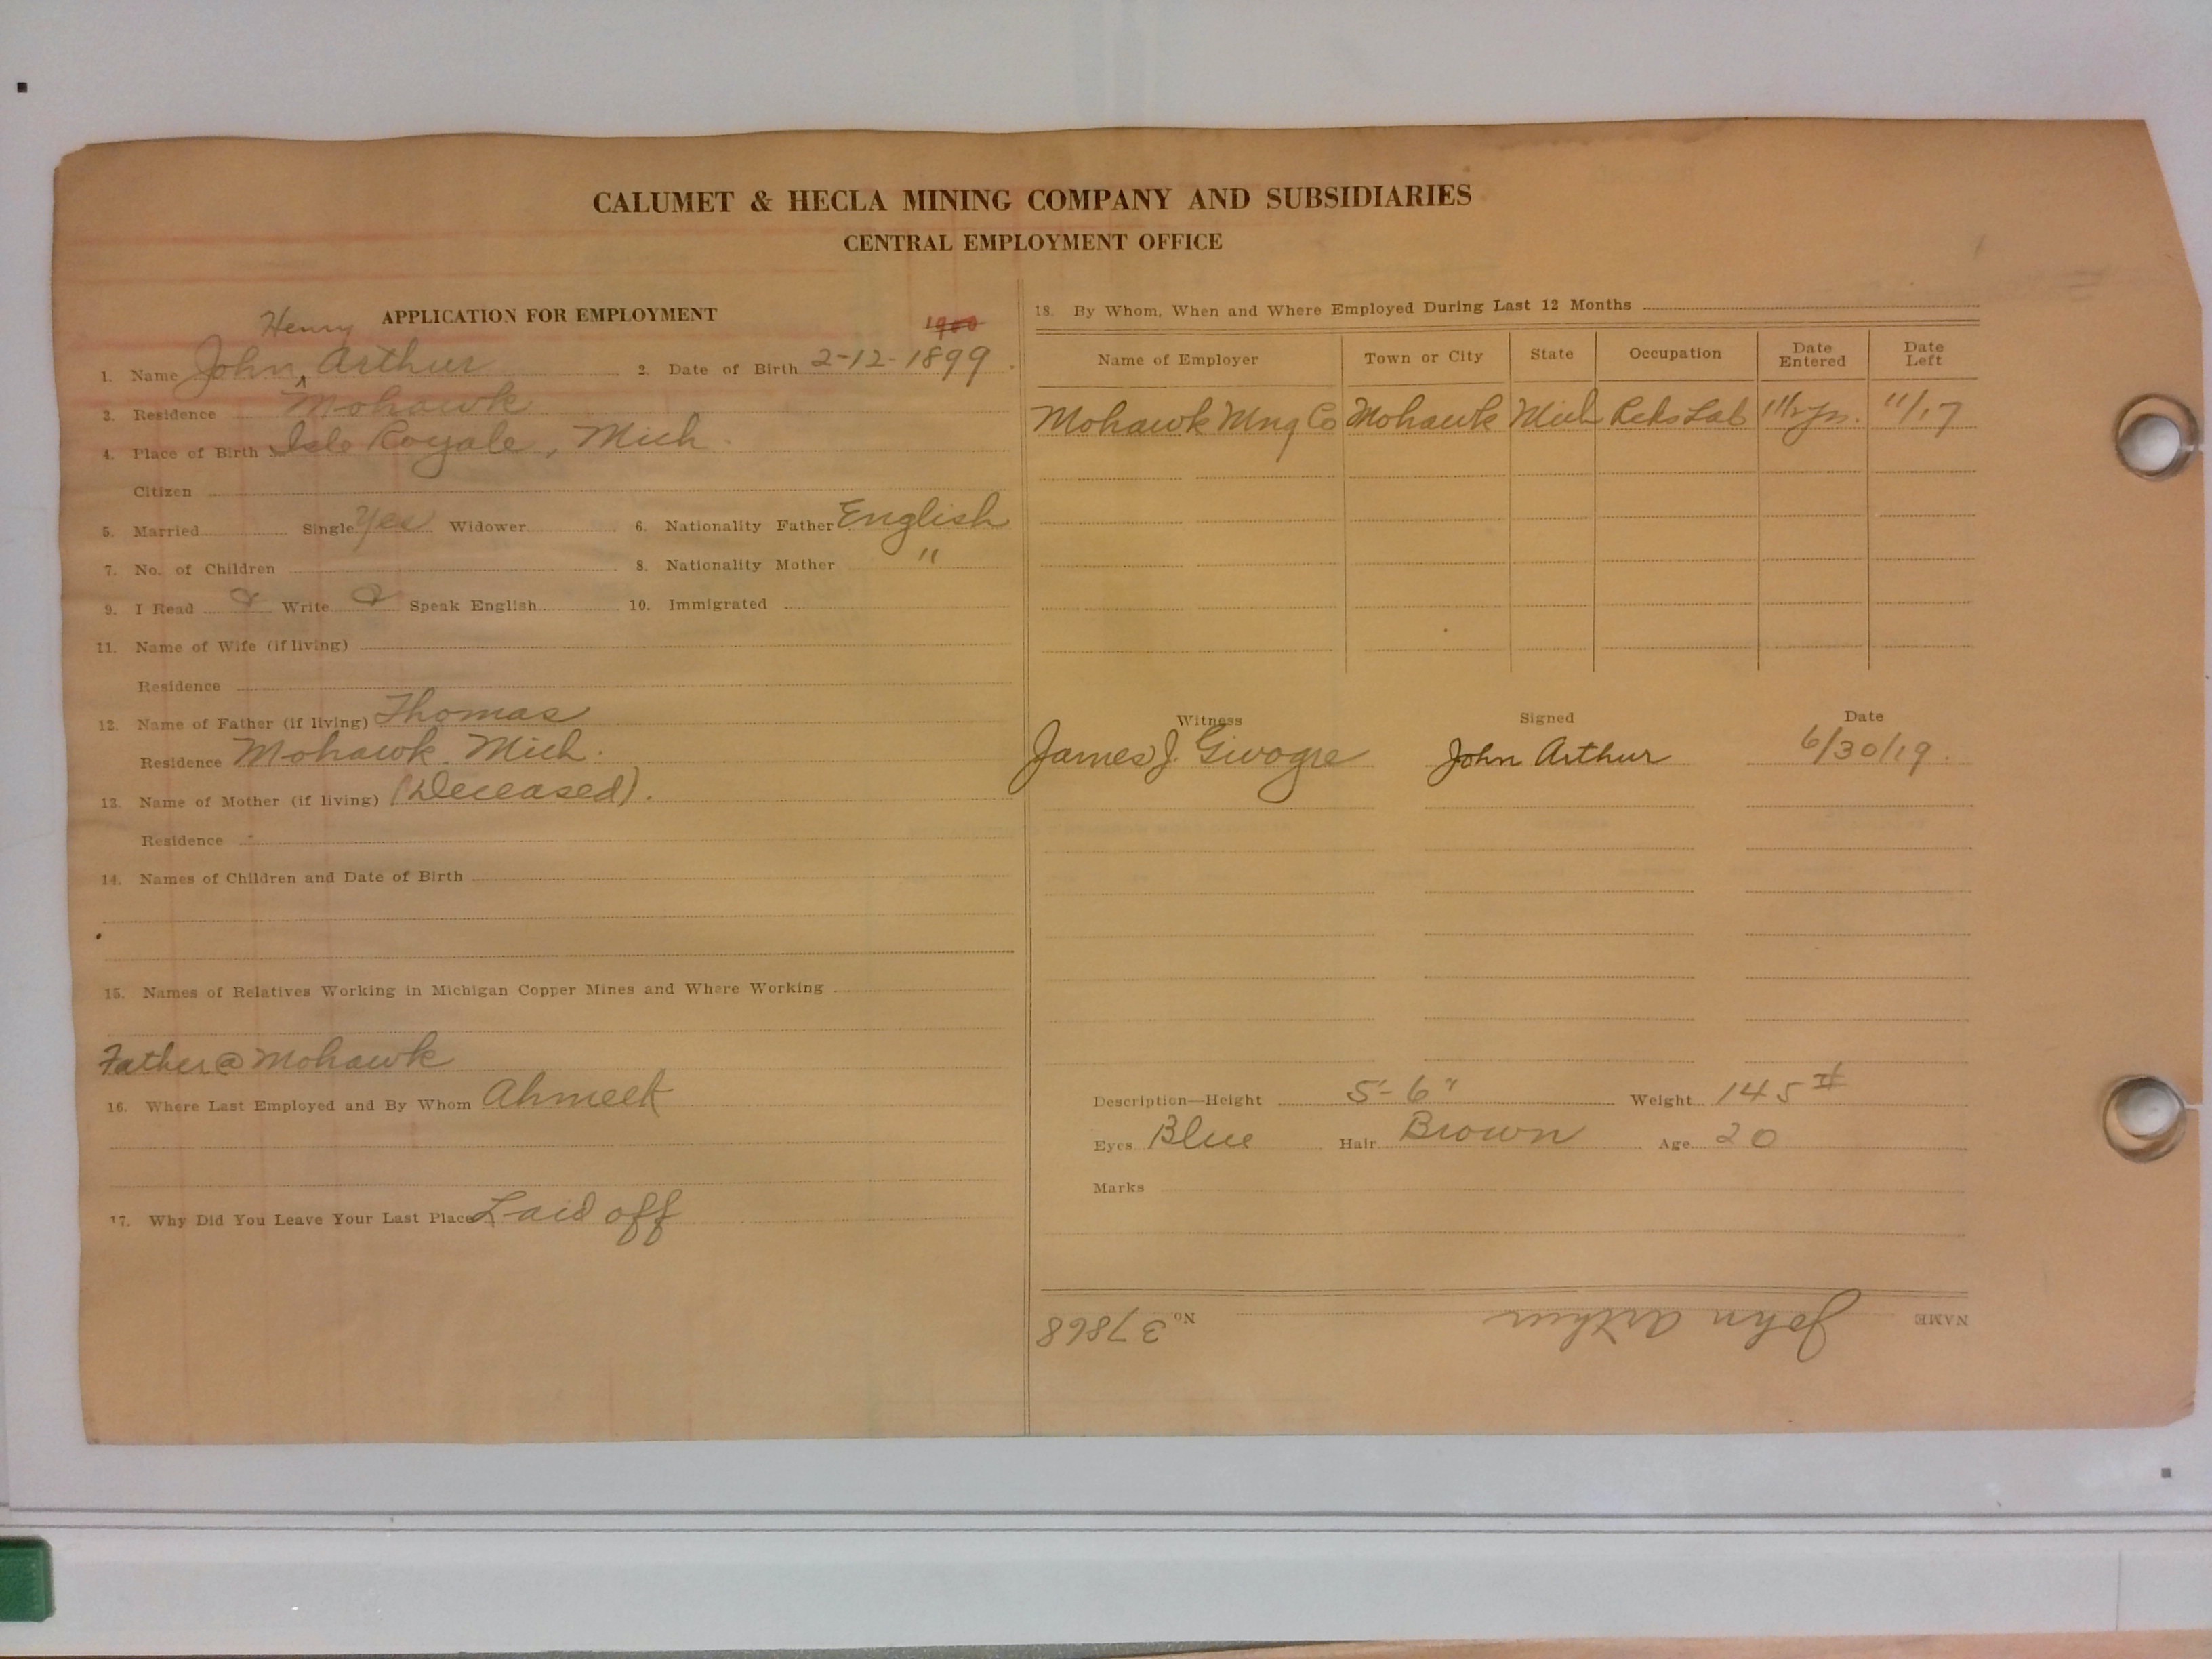 CALUMET & HECLA MINING COMPANY AND SUBSIDIARIES
CENTRAL EMPLOYMENT OFFICE
APPLICATION FOR EMPLOYMENT
Henry
1900
1. Name John ^ Arthur 2. Date of Birth 2-12-1899
3. Residence Mohawk
4. Place of Birth Isle Royale, Mich.
Citizen
5. Married Single Yes Widower 6. Nationality Father English
7. No. of Children 8. Nationality Mother "
9. I Read Write Speak English 10. Immigrated
11. Name of Wife (if living)
Residence
12. Name of Father (if living) Thomas
Residence Mohawk. Mich.
13. Name of Mother (if living) (Deceased).
Residence
14. Names of Children and Date of Birth
15. Names of Relatives Working in Michigan Copper Mines and Where Working
Father @ Mohawk
16. Where Last Employed and By Whom Ahmeek
17. Why Did You Leave Your Last Place Laid off
18. By Whom, When and Where Employed During Last 12 Months
Name of Employer Town or City State Occupation Date Entered Date Left
Mohawk Mng Co Mohawk Mich Lab 11/17
Witness Signed Date
James J. John Arthur 6/30/19.
Description—Height 5'-6" Weight 145 #
Eyes Blue Hair Brown Age 20
Marks
NAME John Arthur No. 37868